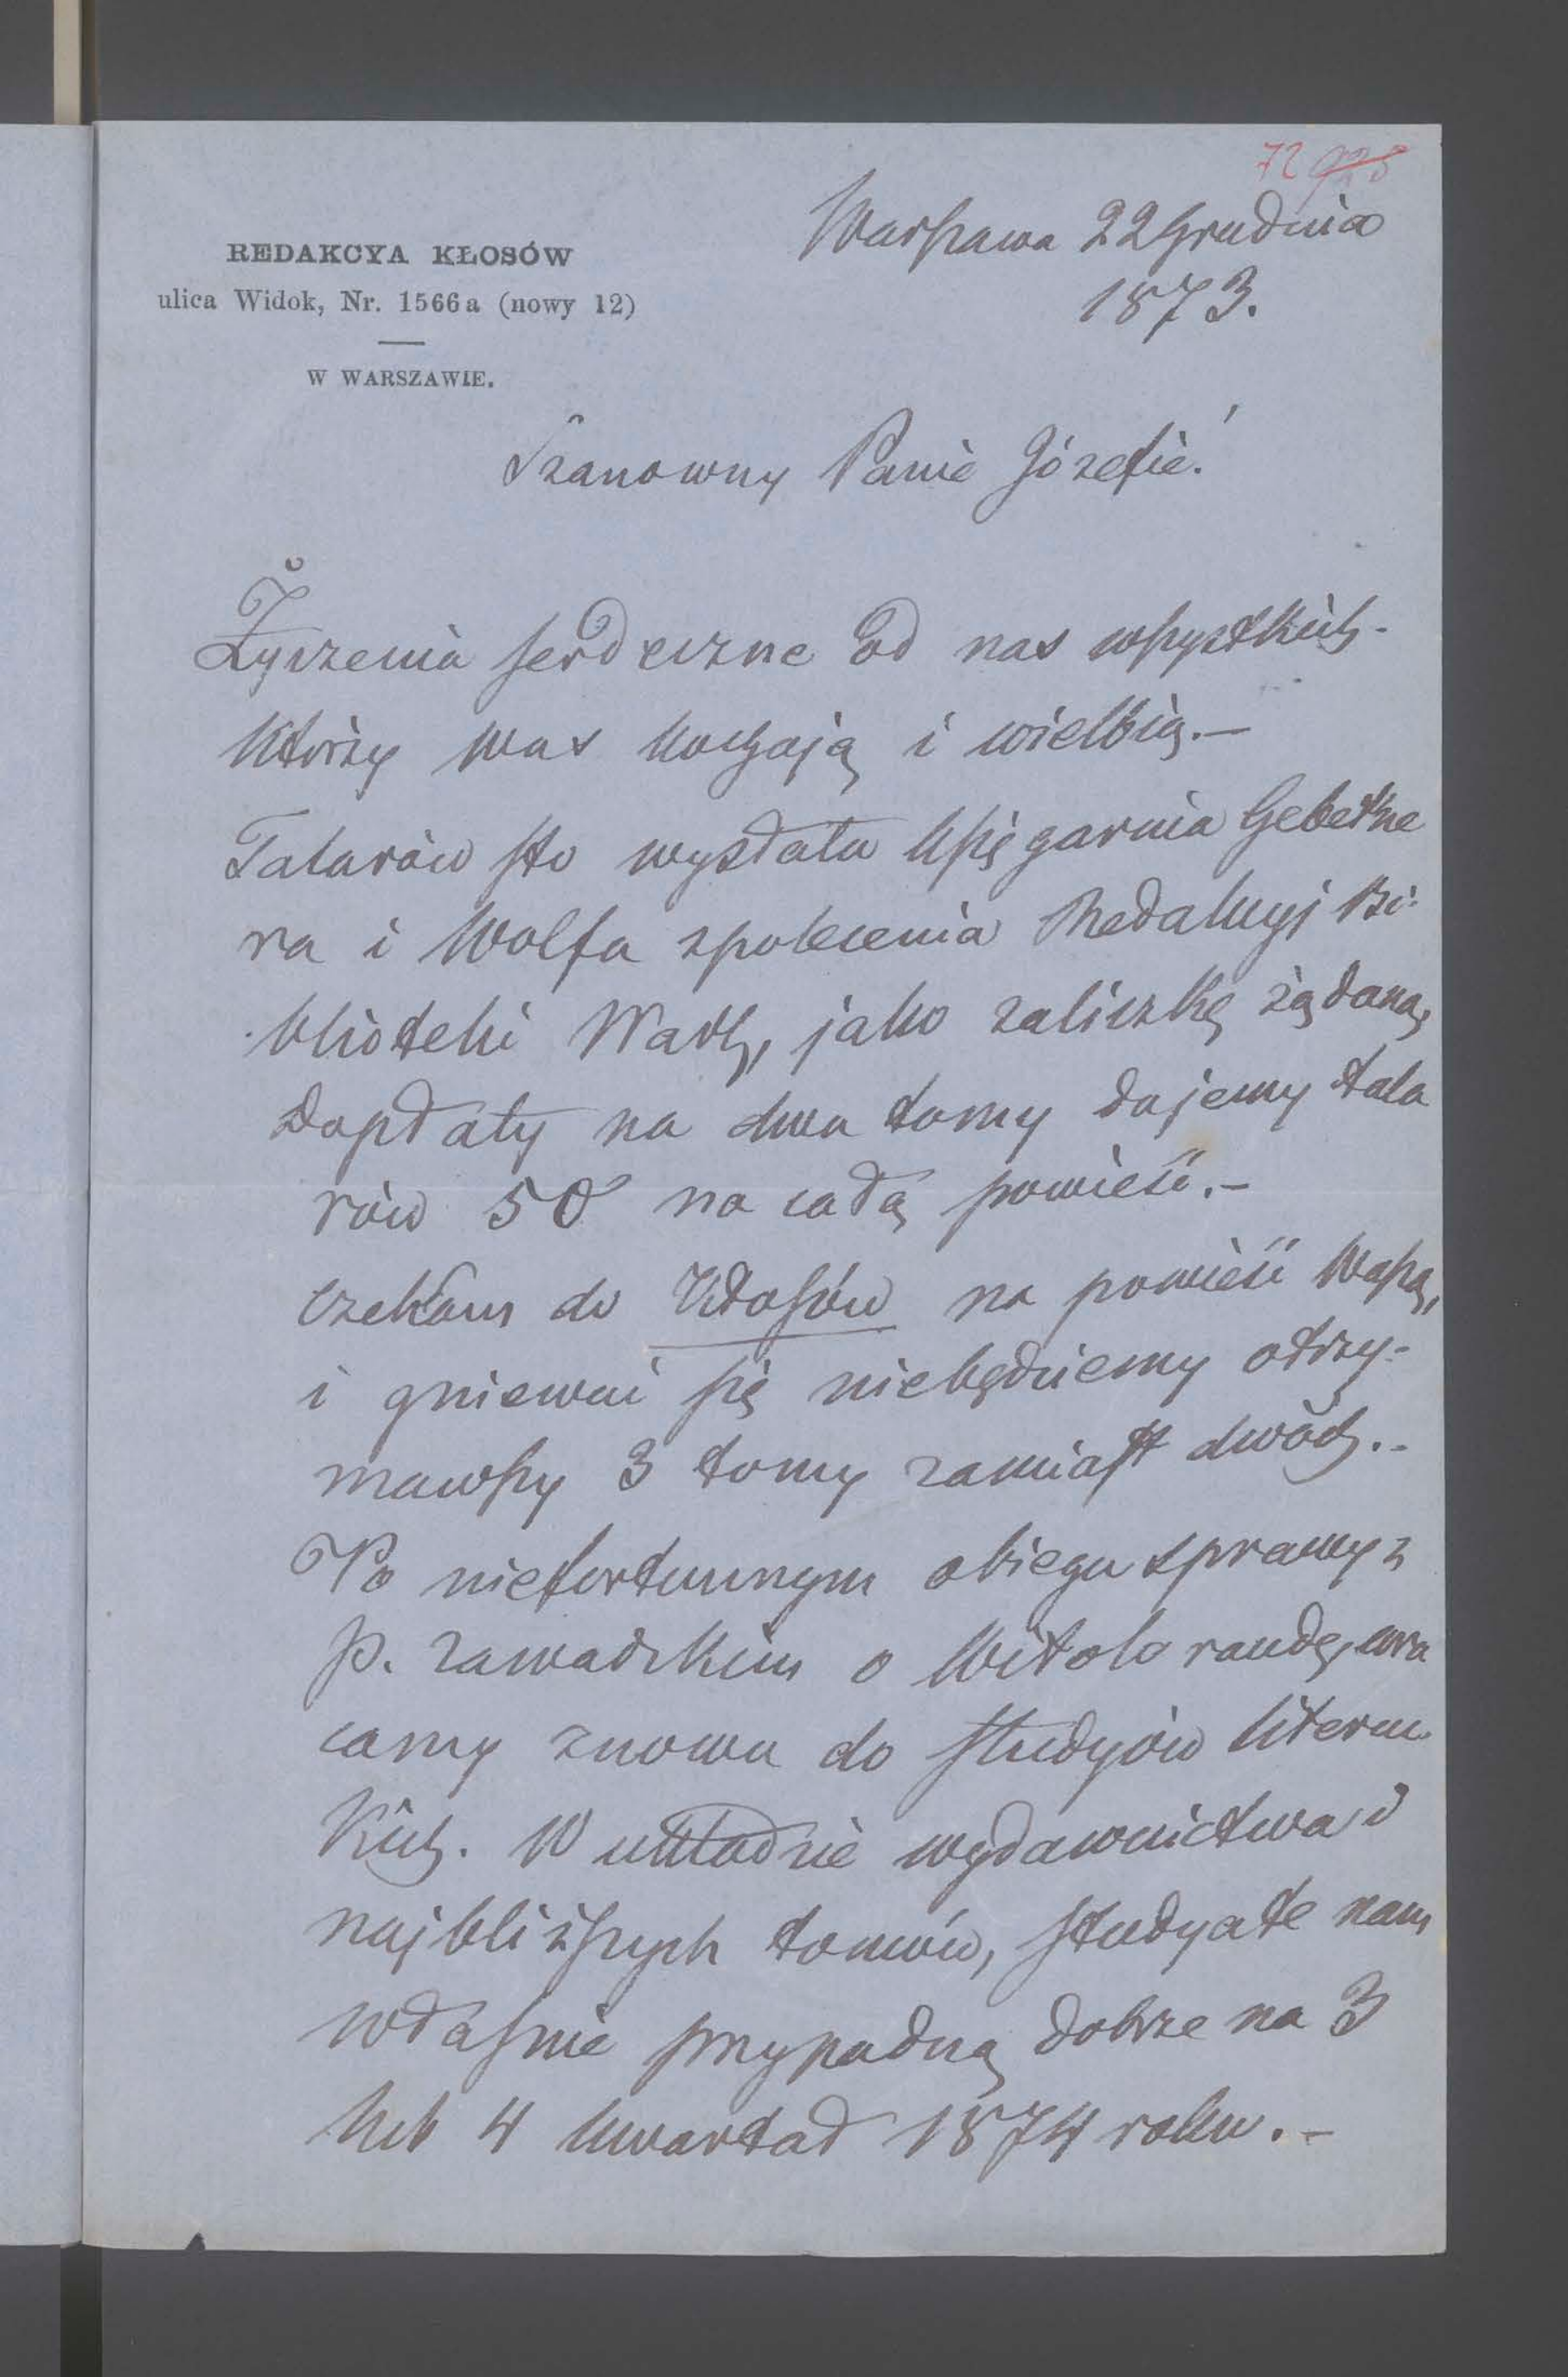 72 928
REDAKCYA KŁOSÓW
ulica Widok, Nr. 1566a (nowy 12)
W WARSZAWIE.
Warszawa 22 Grudnia
1873.
Szanowny Panie Józefie!
Życzenia serdeczne od nas wszystkich
którzy was kochają i wielbią.—
Talarów sto wysłała Księgarnia Gebethne
ra i Wolfa z polecenia Redakcyi Bi-
blioteki Warsz, jako zaliczkę żądaną,
Dopłaty na dwa tomy dajemy tala
rów 50 na całą powieść.—
Czekam do Kłosów na powieść Waszą,
i gniewać się niebędziemy otrzy-
mawszy 3 tomy zamiast dwóch.-
Po niefortunnym obiegu sprawy z
p. Zawadzkim o Witoloraudę, wra
camy znowu do studyów literac
kich. W układzie wydawnictwa i
najbliższych tomów, studya te nam
właśnie przypadną dobrze na 3
lub 4 kwartał 1874 roku.-